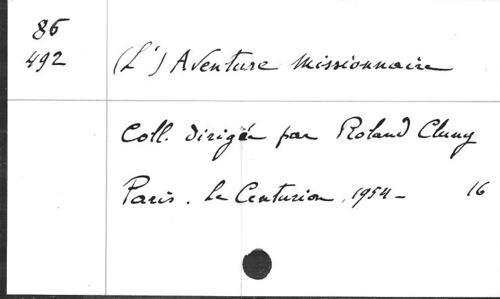 86
492
(L') Aventure missionnaire
Coll. dirigée par Roland Cluny
Paris. Le Centurion, 1954 - 16